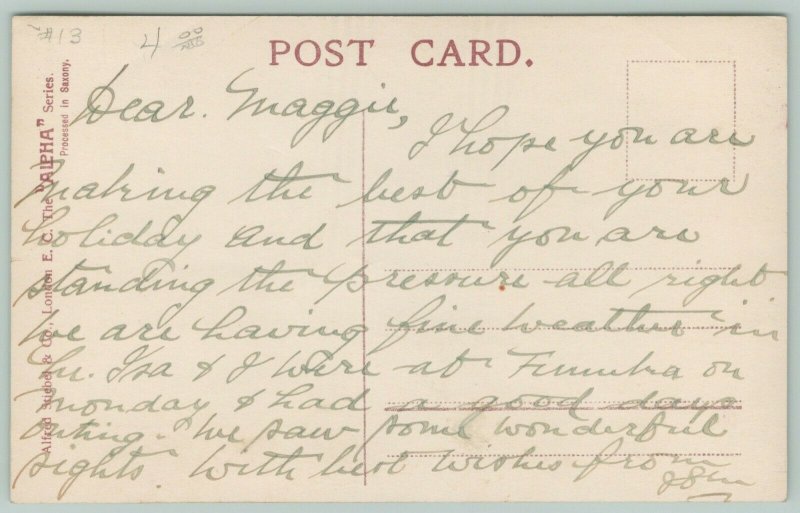 #13
4 00
POST CARD.
Alfred Stiebel & Co., London E. C. The "ALPHA" Series.
Processed in Saxony.
Dear. Maggie,
I hope you are
making the best of your
holiday and that you are
standing the pressure all right
We are having fine weather in
Isa & I were at on
Monday & had a good days
outing. We saw some wonderful
sights. With best wishes from